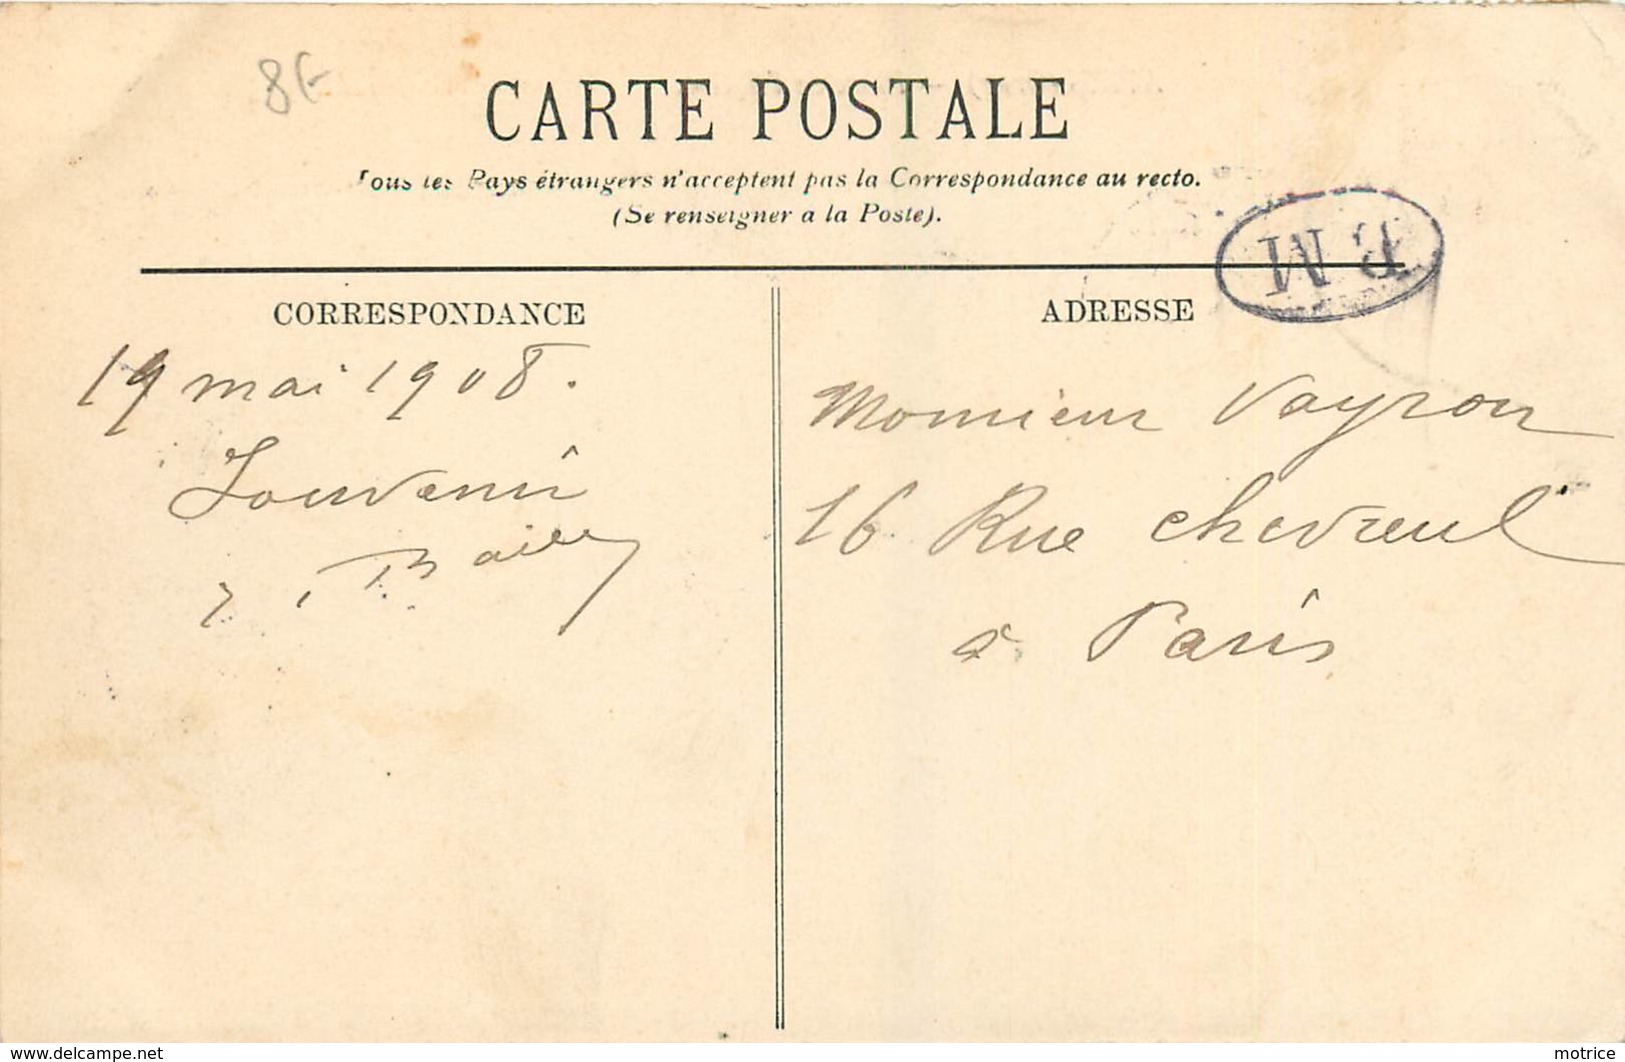 8€
CARTE POSTALE
Tous les Pays étrangers n'acceptent pas la Correspondance au recto.
(Se renseigner a la Poste).
CORRESPONDANCE
19 mai 1908.
Souvenir
ADRESSE
Monsieur Vayron
16 Rue chevreul
à Paris
www.delcampe.net
motrice